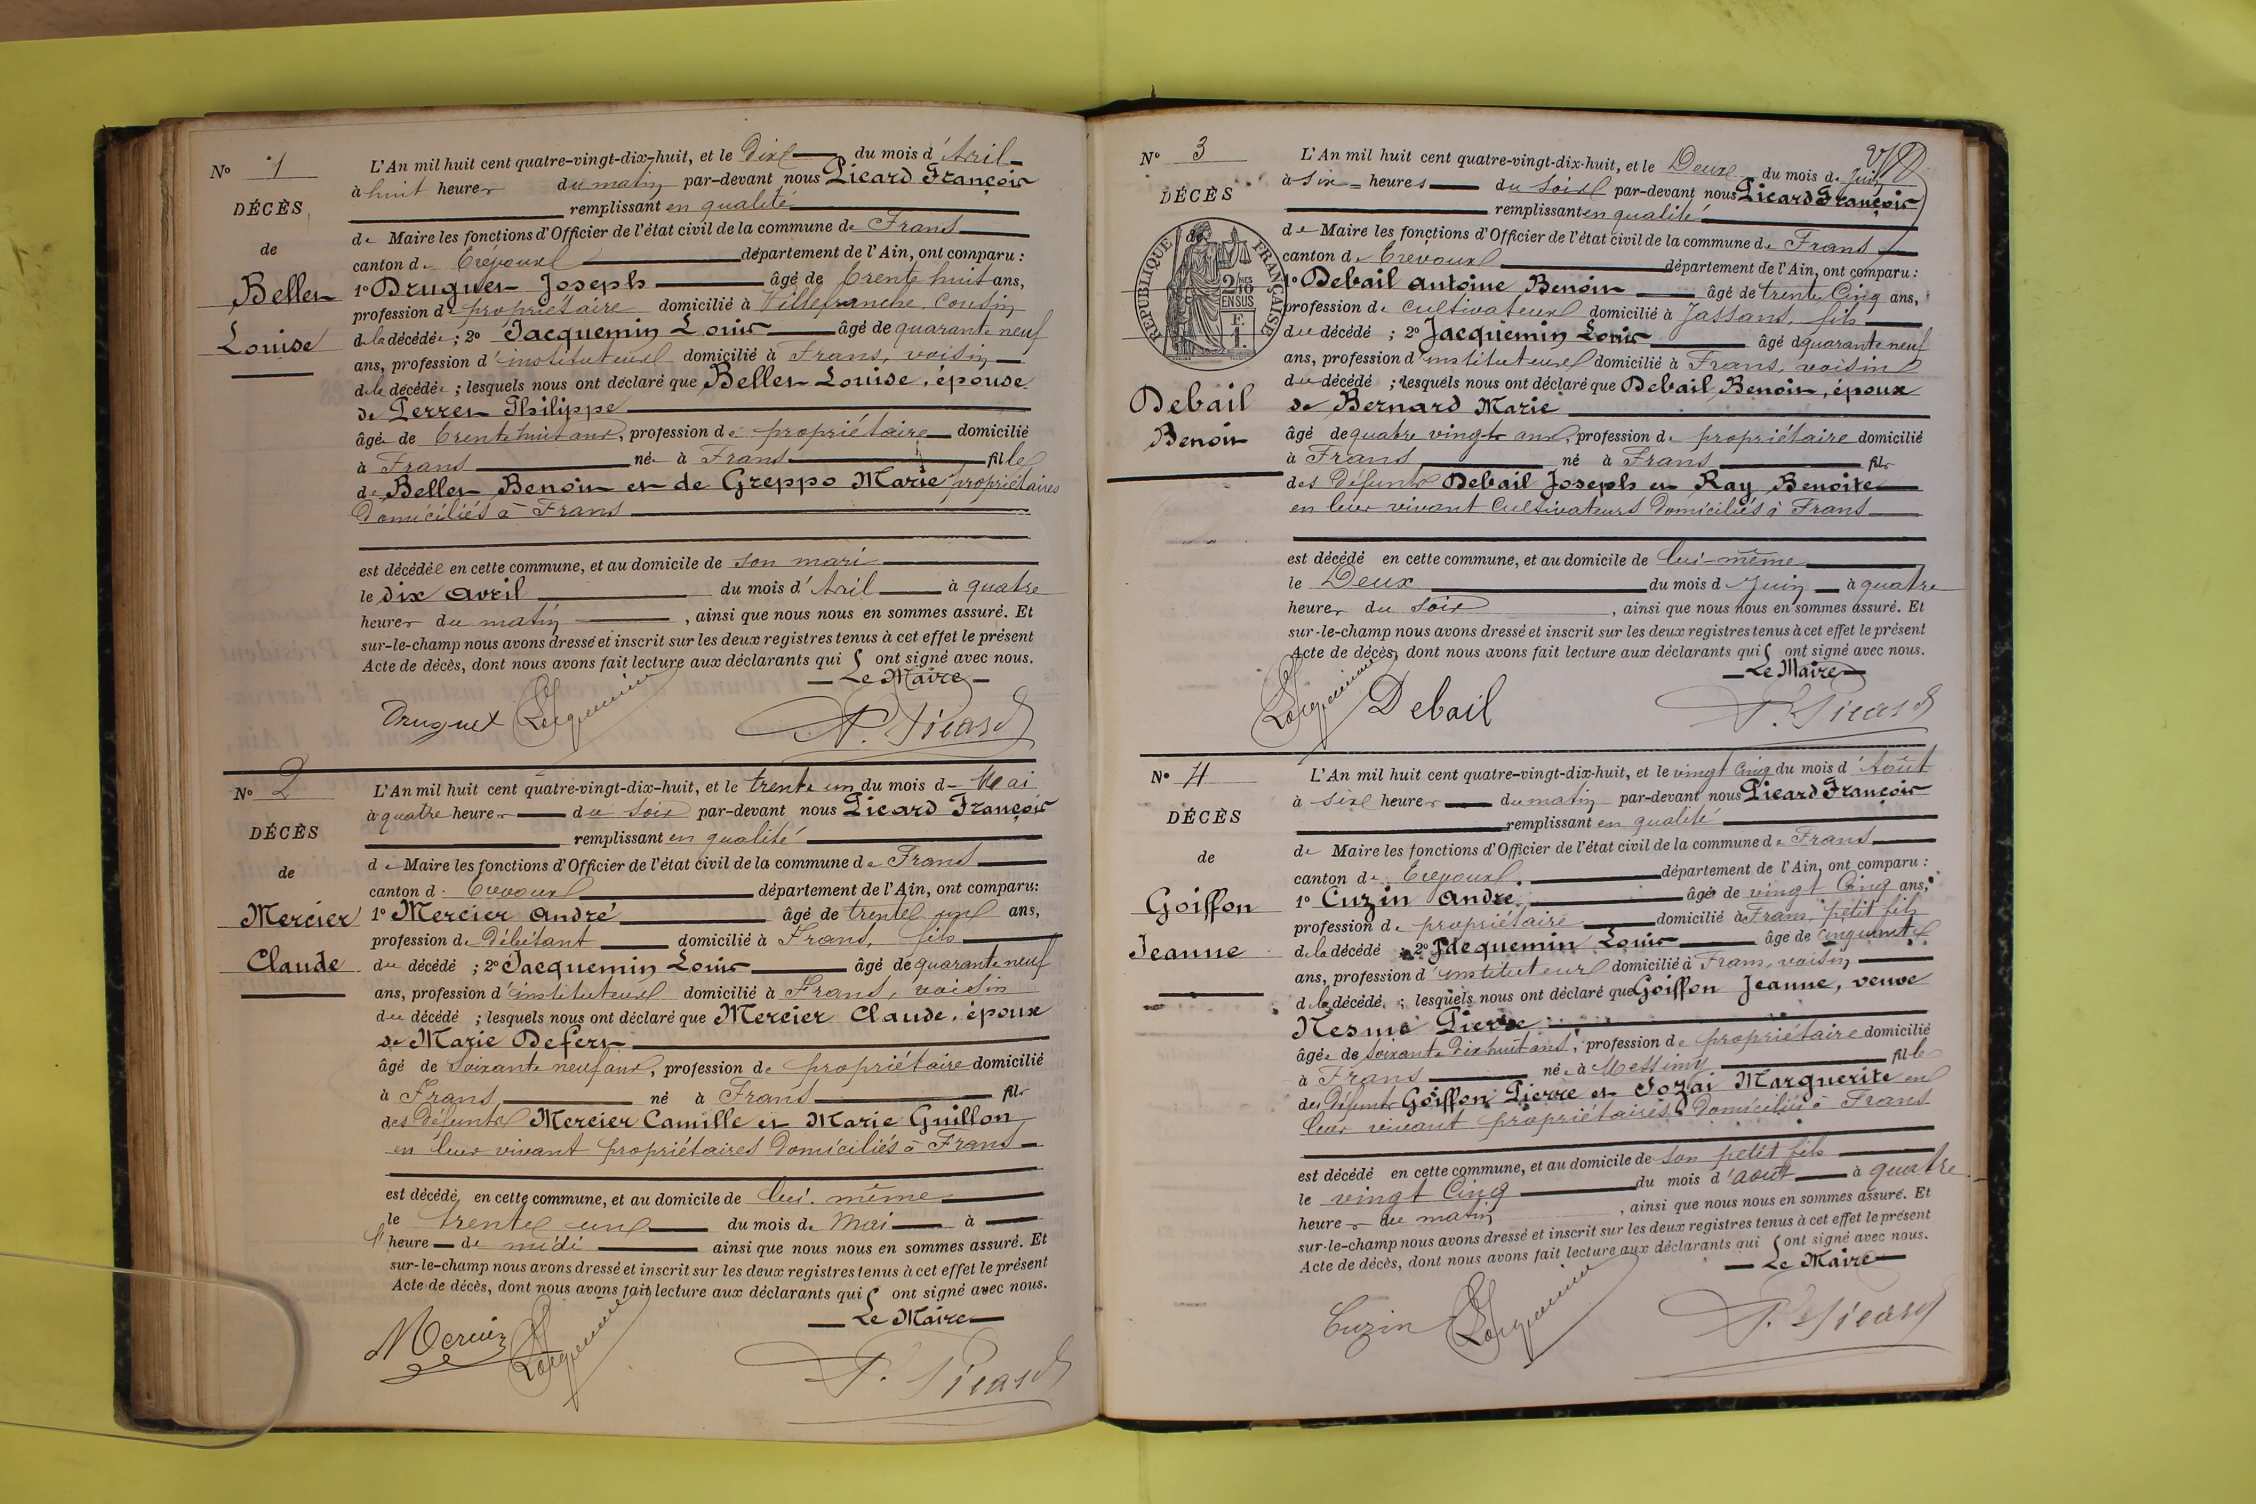 N° 1
DÉCÈS
de
Bellet
Louise
L'An mil huit cent quatre-vingt-dix-huit, et le Dix du mois d'Avril
à huit heures du matin par-devant nous Picard François
remplissant en qualité
de Maire les fonctions d'Officier de l'état civil de la commune de Frans
canton de Trévoux département de l'Ain, ont comparu :
1° Druguet Joseph âgé de trente huit ans,
profession de propriétaire domicilié à Villefranche, cousin
de la décédée ; 2° Jacquemin Louis âgé de quarante neuf
ans, profession d'instituteur domicilié à Frans, voisin
de la décédée ; lesquels nous ont déclaré que Bellet Louise, épouse
de Perret Philippe
âgée de trente huit ans, profession de propriétaire domicilié
à Frans née à Frans fille
de Bellet Benoit et de Greppo Marie propriétaires
domiciliés à Frans
est décédée en cette commune, et au domicile de son mari
le dix avril du mois d'Avril à quatre
heures du matin, ainsi que nous nous en sommes assuré. Et
sur-le-champ nous avons dressé et inscrit sur les deux registres tenus à cet effet le présent
Acte de décès, dont nous avons fait lecture aux déclarants qui ont signé avec nous.
Le Maire
Druguet Jacquemin P. Picard
N° 2
DÉCÈS
de
Mercier
Claude
L'An mil huit cent quatre-vingt-dix-huit, et le trente un du mois de Mai
à quatre heures du soir par-devant nous Picard François
remplissant en qualité
de Maire les fonctions d'Officier de l'état civil de la commune de Frans
canton de Trévoux département de l'Ain, ont comparu :
1° Mercier André âgé de trente un ans,
profession de Débitant domicilié à Frans, fils
du décédé ; 2° Jacquemin Louis âgé de quarante neuf
ans, profession d'instituteur domicilié à Frans, voisin
du décédé ; lesquels nous ont déclaré que Mercier Claude, époux
de Marie Defert
âgé de soixante neuf ans, profession de propriétaire domicilié
à Frans né à Frans fils
des défunts Mercier Camille et Marie Guillon
en leur vivant propriétaires domiciliés à Frans
est décédé en cette commune, et au domicile de lui-même
le trente un du mois de Mai à
heure de midi ainsi que nous nous en sommes assuré. Et
sur-le-champ nous avons dressé et inscrit sur les deux registres tenus à cet effet le présent
Acte de décès, dont nous avons fait lecture aux déclarants qui ont signé avec nous.
Le Maire
Mercier Jacquemin P. Picard
N° 3
DÉCÈS
de
RÉPUBLIQUE FRANÇAISE
2/10 EN SUS
F.
1.
Debail
Benoit
L'An mil huit cent quatre-vingt-dix-huit, et le Deux du mois de Juin
à six heures du soir par-devant nous Picard François
remplissant en qualité
de Maire les fonctions d'Officier de l'état civil de la commune de Frans
canton de Trévoux département de l'Ain, ont comparu :
1° Debail Antoine Benoit âgé de trente Cinq ans,
profession de cultivateur domicilié à Jassans, fils
du décédé ; 2° Jacquemin Louis âgé de quarante neuf
ans, profession d'instituteur domicilié à Frans, voisin
du décédé ; lesquels nous ont déclaré que Debail Benoit, époux
de Bernard Marie
âgé de quatre vingt ans, profession de propriétaire domicilié
à Frans né à Frans fils
des défunts Debail Joseph et Ray Benoite
en leur vivant Cultivateurs domiciliés à Frans
est décédé en cette commune, et au domicile de lui-même
le Deux du mois de Juin à quatre
heures du soir, ainsi que nous nous en sommes assuré. Et
sur-le-champ nous avons dressé et inscrit sur les deux registres tenus à cet effet le présent
Acte de décès, dont nous avons fait lecture aux déclarants qui ont signé avec nous.
Le Maire
Jacquemin Debail P. Picard
N° 4
DÉCÈS
de
Goiffon
Jeanne
L'An mil huit cent quatre-vingt-dix-huit, et le vingt cinq du mois d'Août
à six heures du matin par-devant nous Picard François
remplissant en qualité
de Maire les fonctions d'Officier de l'état civil de la commune de Frans
canton de Trévoux département de l'Ain, ont comparu :
1° Cuzin André âgé de vingt Cinq ans,
profession de propriétaire domicilié à Frans, petit fils
de la décédé ; 2° Jacquemin Louis âgé de cinquante
ans, profession d'instituteur domicilié à Frans, voisin
de la décédé ; lesquels nous ont déclaré que Goiffon Jeanne, veuve
Nesme Pierre
âgée de soixante Dix huit ans, profession de propriétaire domicilié
à Frans née à Messimy fille
des défunts Goiffon Pierre et Marguerite en
leur vivant propriétaires domiciliés à Frans
est décédé en cette commune, et au domicile de son petit fils
le vingt Cinq du mois d'août à quatre
heures du matin, ainsi que nous nous en sommes assuré. Et
sur-le-champ nous avons dressé et inscrit sur les deux registres tenus à cet effet le présent
Acte de décès, dont nous avons fait lecture aux déclarants qui ont signé avec nous.
Le Maire
Cuzin Jacquemin P. Picard